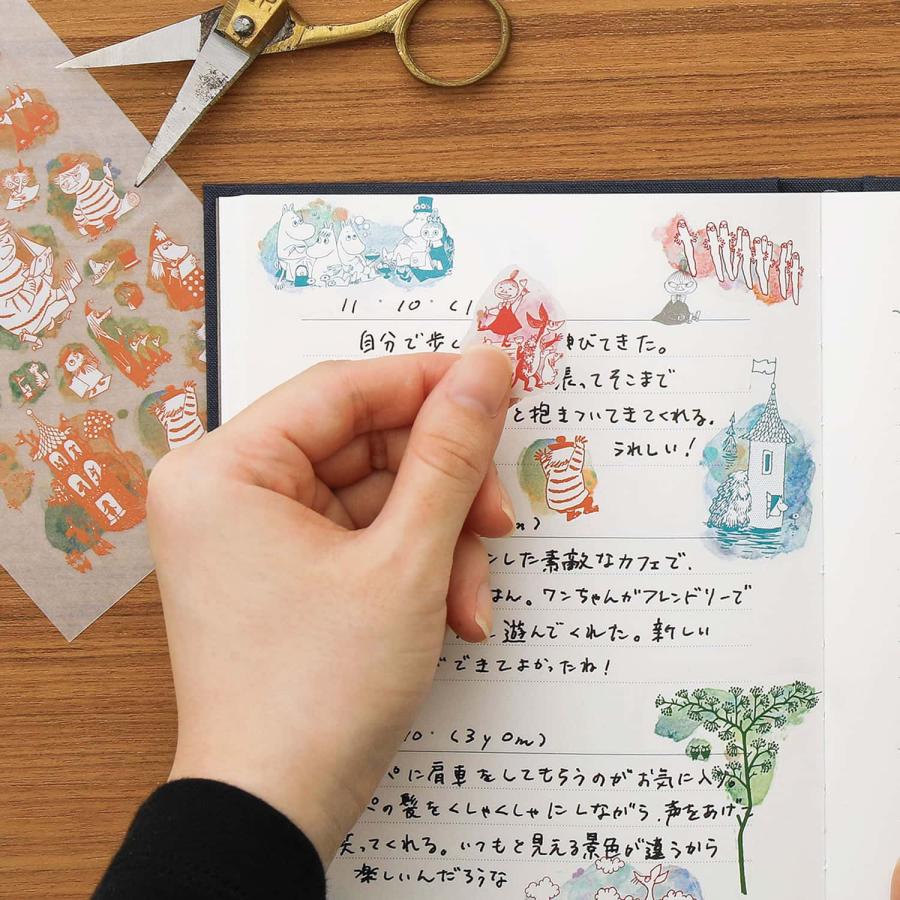 11・10・(1
自分で歩 びてきた。
張ってそこまで
と抱きついてきてくれる。
うれしい!
m)
した素敵なカフェで、
はん。ワンちゃんがフレンドリーで
遊んでくれた。新しい
できてよかったね!
10・(3y0m)
パに肩車をしてもらうのがお気に入り。
パの髪をくしゃくしゃにしながら、声をあげて
笑ってくれる。いつもと見える景色が違うから
楽しいんだろうな